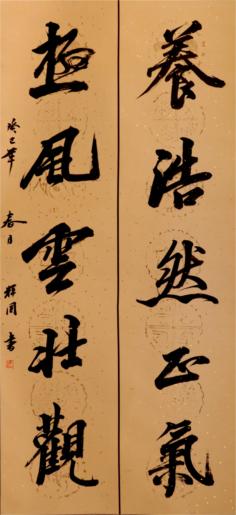 養浩然正氣
極風雲壯觀
癸巳年
春月
書